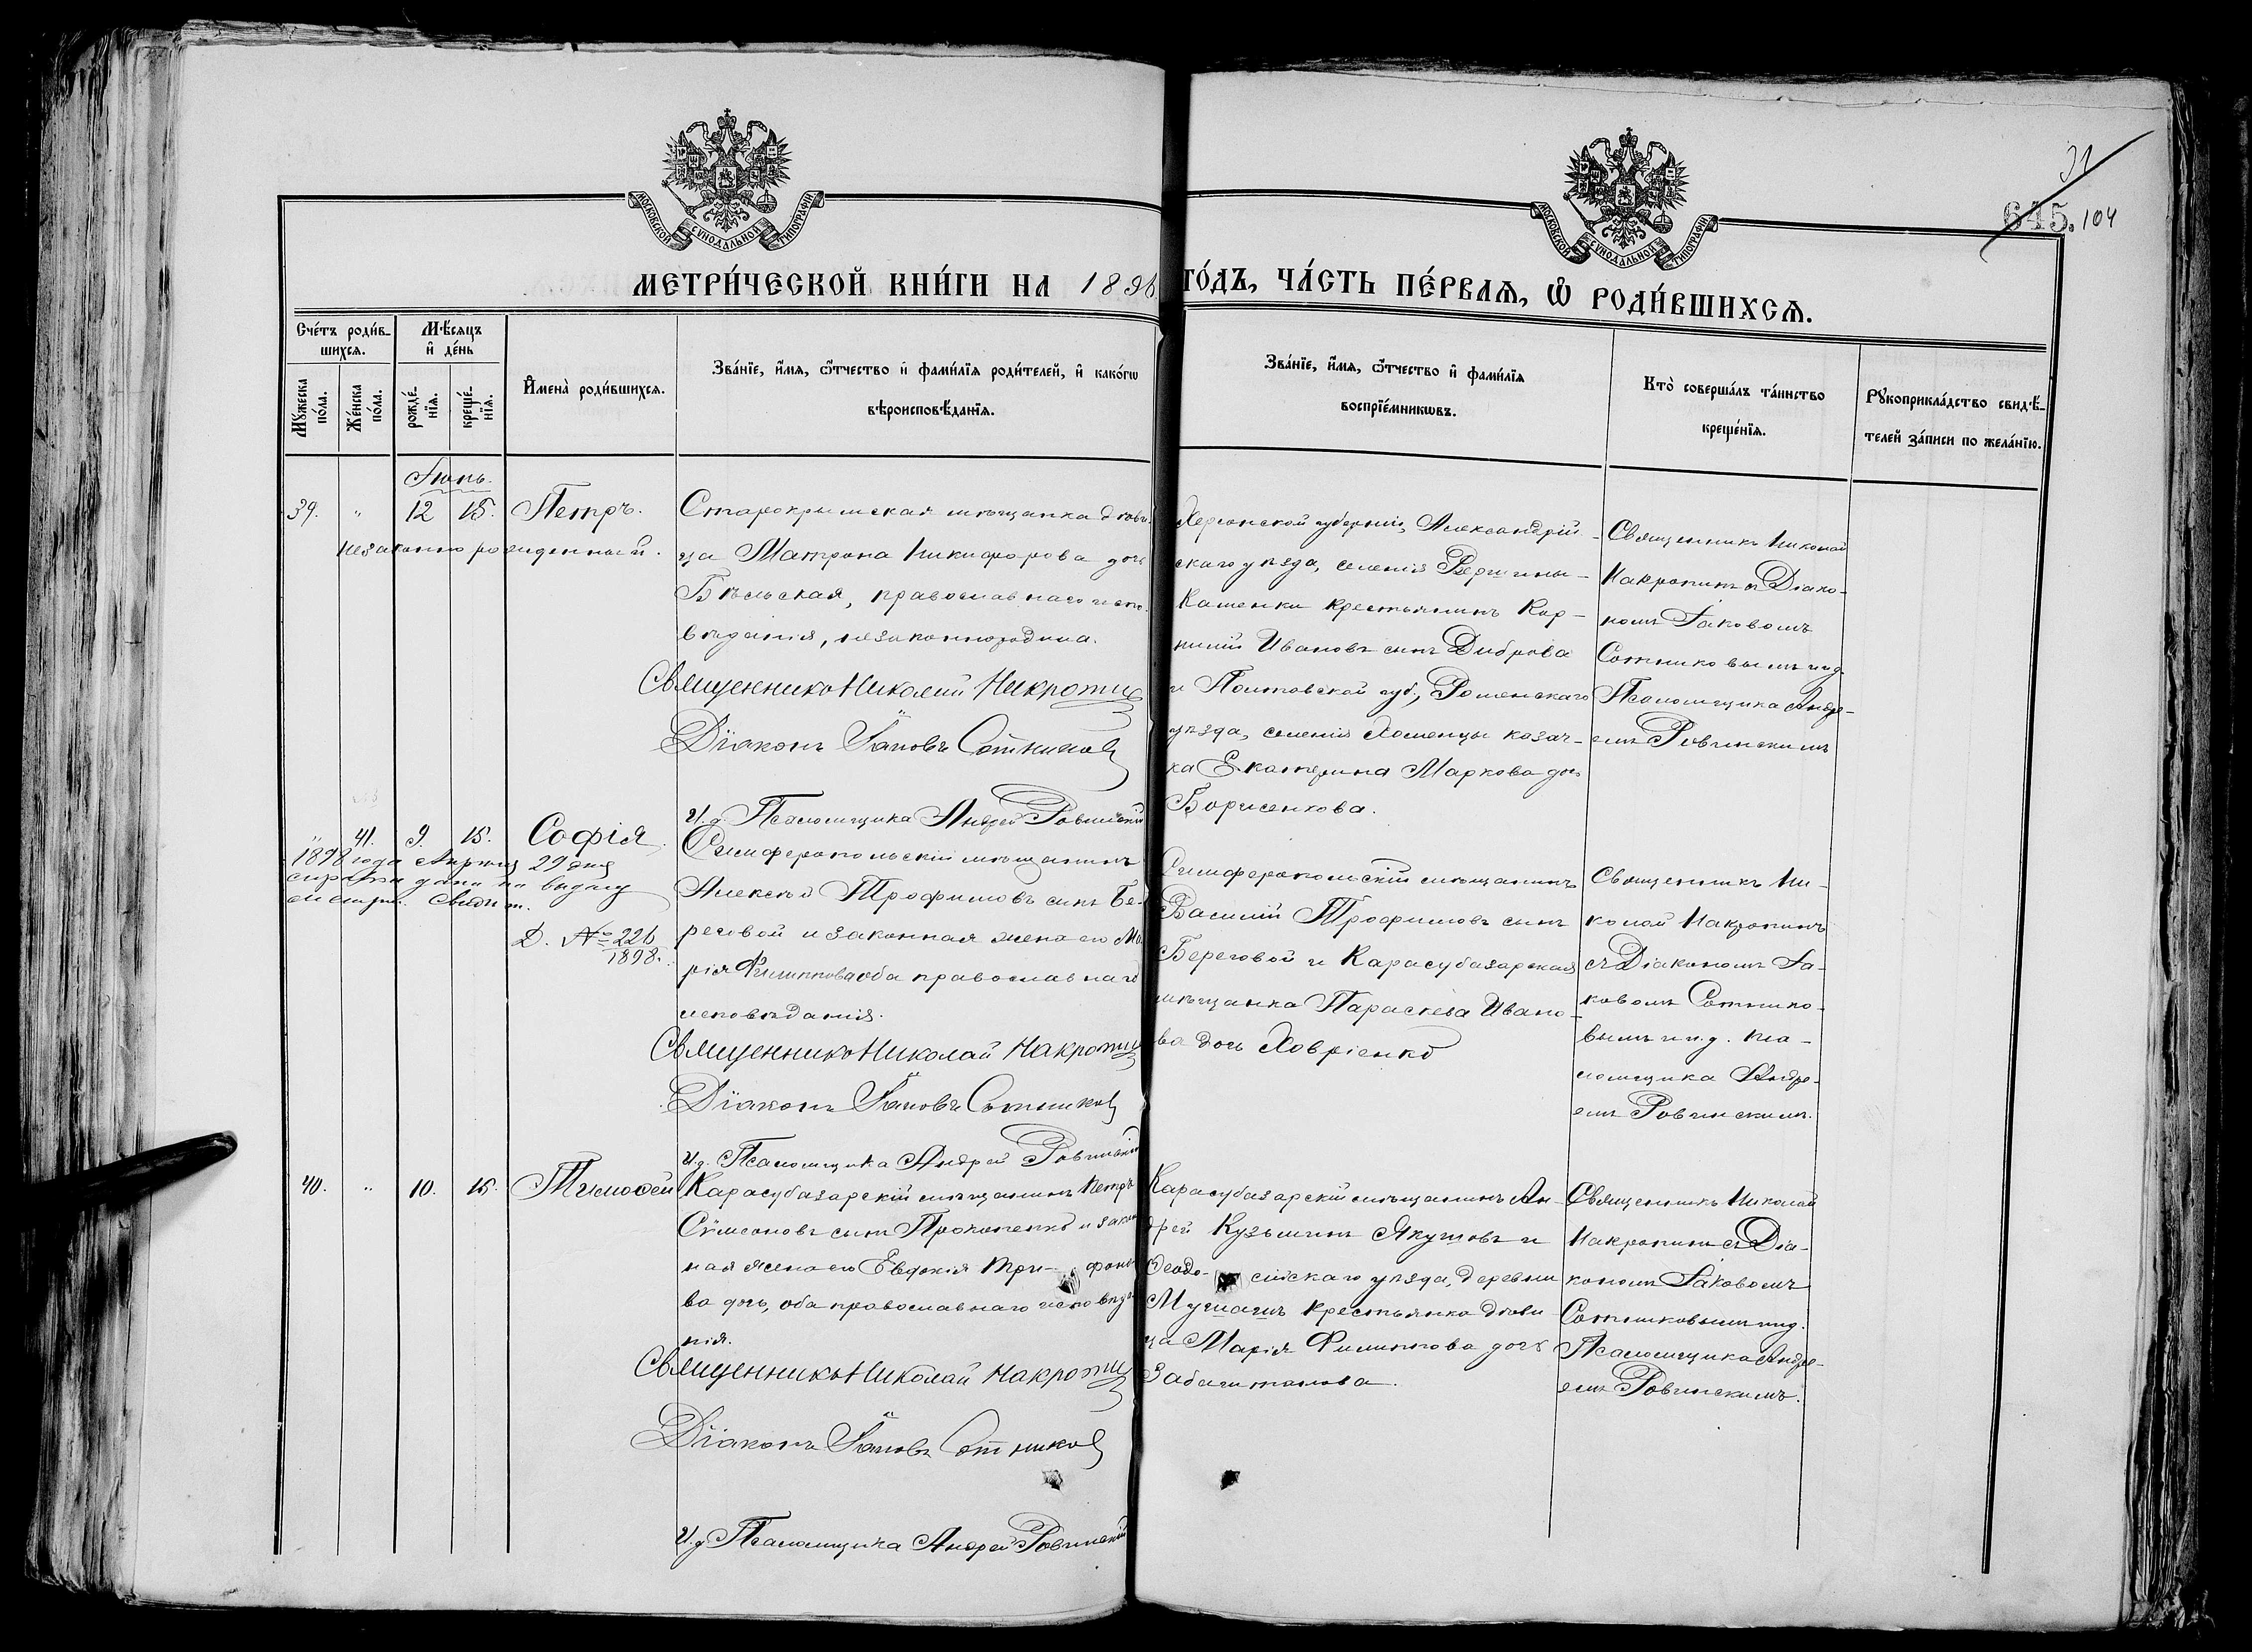 31
645. 104
МОСКОВСКОЙ СУНОДАЛЬНОЙ ТИПОГРАФІИ.
МОСКОВСКОЙ СУНОДАЛЬНОЙ ТИПОГРАФІИ.
МЕТРИ́ЧЕСКОЙ КНИ́ГИ НА 1896 ГО́ДЪ, ЧА́СТЬ ПЕ́РВАѦ, Ѡ РОДИ́ВШИХСѦ.
Сче́тъ роди́в-
шихсѧ.
Мꙋжеска по́ла.
Же́нска по́ла.
Мѣ́сѧцъ
и҆ де́нь
рожде́-
нїѧ.
креще́-
нїѧ.
И҆мена̀ роди́вшихсѧ.
Зва́нїе, и҆́мѧ, ѻ҆́тчество и҆ фами́лїѧ роди́телей, и҆ како́гѡ
вѣроисповѣ́данїѧ.
Зва́нїе, и҆́мѧ, ѻ҆́тчество и҆ фами́лїѧ
воспрїе́мникѡвъ.
Кто̀ соверша́лъ та́инство
креще́нїѧ.
Рꙋкоприкла́дство свидѣ́-
телей за́писи по жела́нїю.
Іюнь.
39. " 12 15. Петръ.
незаконно рожденный.
Старокрымская мѣщанка дѣви-
ца Матрона Никифорова дочь
Бѣльская, православнаго испо-
вѣданія, незаконнородила.
Священникъ Николай Накропин
Діаконъ Іаковъ Сотниковъ
И. д. Псаломщика Андрей Ровинскій
Херсонской губерніи, Александрій-
скаго уѣзда, селенія Вершины-
Каменки крестьянинъ Кор-
нилій Ивановъ сынъ Диброва
и Полтавской губ., Роменскаго
уѣзда, селенія Хоменцы казач-
ка Екатерина Маркова дочь
Борисенкова.
Священникъ Николай
Накропинъ съ Діако-
номъ Іаковомъ
Сотниковымъ и и.д.
Псаломщика Андре-
емъ Ровинскимъ
" 41. 9. 15. Софія.
1898 года Апрѣля 29 дня
справка дана на выдачу
метрич. Свидѣт.
Д. № 226
1898.
Симферопольскій мѣщанинъ
Алексѣй Трофимовъ сынъ Бе-
реговой и законная жена его Ма-
рія Филиппова оба православнаго
исповѣданія.
Священникъ Николай Накропин
Діаконъ Іаковъ Сотниковъ
И. д. Псаломщика Андрей Ровинскій
Симферопольскій мѣщанинъ
Василій Трофимовъ сынъ
Береговой и Карасубазарская
мѣщанка Параскева Ивано-
ва дочь Ховріенко
Священникъ Ни-
колай Накропинъ
съ Діакономъ Іа-
ковомъ Сотнико-
вымъ и и.д. Пса-
ломщика Андре-
емъ Ровинскимъ.
40. " 10. 15. Тимоѳей
Карасубазарскій мѣщанинъ Петръ
Сѵмеоновъ сынъ Прокопенко и закон-
ная жена его Евдокія Три-фоно-
ва дочь, оба православнаго исповѣда-
нія.
Священникъ Николай Накропин
Діаконъ Іаковъ Сотниковъ
И. д. Псаломщика Андрей Ровинскій
Карасубазарскій мѣщанинъ Ан-
дрей Кузьминъ Якушовъ и
Ѳеодо-сійскаго уѣзда, деревни
крестьянка дѣви-
ца Марія Филиппова дочь
Священникъ Николай
Накропинъ съ Діа-
кономъ Іаковомъ
Сотниковымъ и и.д.
Псаломщика Андре-
емъ Ровинскимъ.